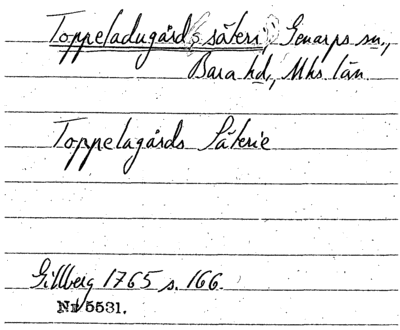 Toppeladugårds säteri, Genarps sn.,
Bara hd., Mhs. län
Toppelagårds Säterie
Gillberg 1765 s. 166.
Nr 5531.